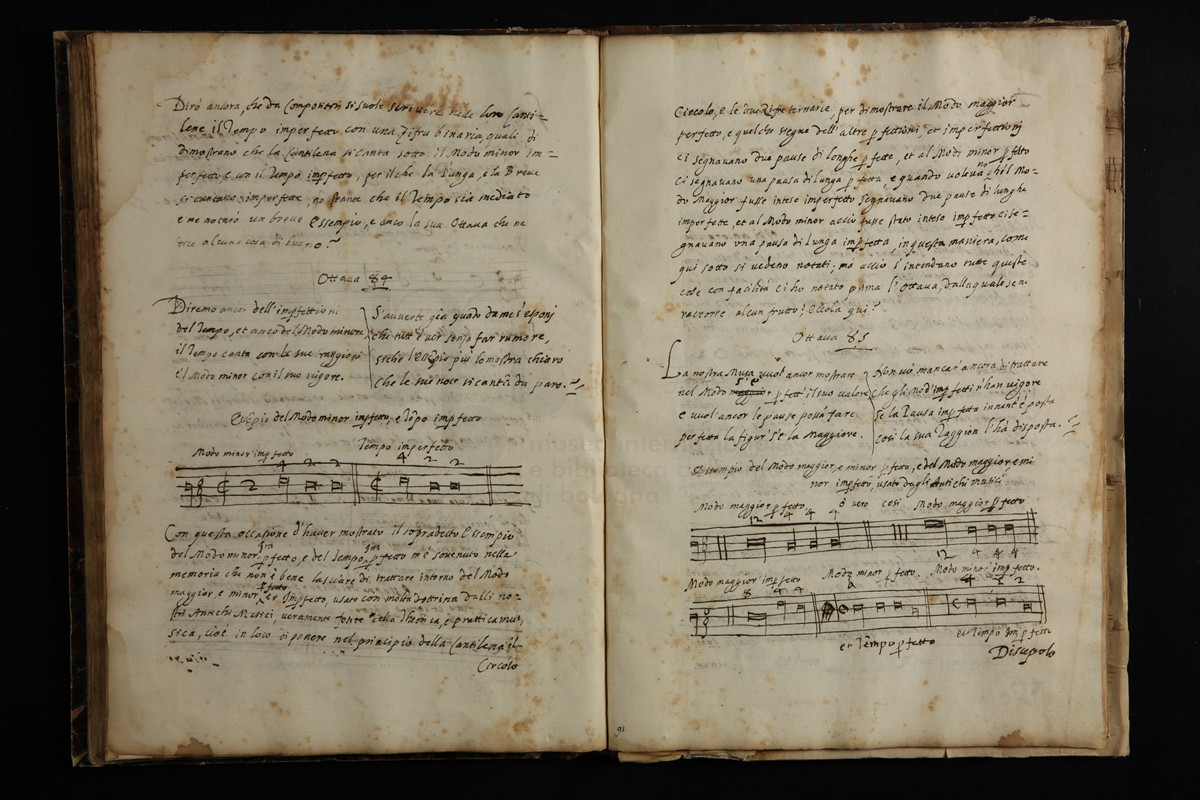 Dirò ancora, che da Compositori si suole scrivere nele loro Canti=
lene il Tempo imperfetto con una Zifra binaria, quali di
dimostrano che la Cantilena si canta sotto il Modo minor im=
perfetto, e con il Tempo impfetto, per il che la Lunga, e la Breve
si cantano imperfette, no stante che il Tempo sia mediato
e ne notarò un breve Essempio, e anco la sua Ottava che ne
dice alcuna cosa di buono.
Ottava 84
Diremo ancor dell'impfettioni
del Tempo, et anco del Modo minore
il Tempo canta con le sue raggioni
e'l Modo minor con il suo vigore.
S'auverte già quado da me s'esponj
che tutt'l ver senza far rumore,
siche l'Esepio più lo mostra chiaro
che le sue note si cantã da paro.
Esepio del Modo minor impfetto, e Tẽpo impfetto
Modo minor impfetto
Tempo imperfetto
4 2 2
4 2 2
2
Con questa occasione d'haver mostrato il sopradetto Essempio
del Modo minor pfetto, e del Tempo pfetto m'è sovenuto nella
im im
memoria che non è bene lasciare di trattare intorno del Modo
maggior, e minor pfetto et Impfetto, usato con molta dottrina dalli no=
stri Antichi Musici, veramente fonte della Theorica, e prattica mu,
sica, cioè in loco di ponere nel principio della Cantilena il
Circolo
Circolo, e le due Zifre ternarie, per dimostrare il Modo maggior
perfetto, e qualche segno dell'altre pfettioni, et imperfettionj
ci segnavano due pause di longhe pfette, et al Modo minor pfetto
ci segnavano una pausa di Lunga pfetta, e quando volevano ch'il Mo-
do Maggior fusse inteso imperfetto segnavano due pause di lunghe
imperfette, et al Modo minor acciò fusse stato inteso impfetto ci se=
gnavano una pausa di Lunga impfetta, in questa maniera, come
qui sotto si vedeno notati; ma acciò s'intendano tutte queste
cose con facilità ci ho notato prima l'Ottava, dalla quale se ni
raccorre alcun frutto! Eccola qui?
Ottava 85
La nostra Musa vuol ancor mostrare
nel Modo pfett'il suo valore
e vuol ancor le pause possa fare
perfetta la figur's'è la Maggiore.
Non vò mancar ancora di trattare
che gli Mod'impfetti n'han vigore
se la Pausa impfetta innant'è posta
così la sua Raggion l'hà disposta.
Essempio del Modo maggior, e minor pfetto, e del Modo maggior e mi
nor impfetto, usato dagli Antichi Musici
Modo maggior pfetto
ò vero così
Modo maggior pfetto
12 4 4 4
12 4 4 4
Modo maggior impfetto
Modo minor pfetto.
Modo minor impfetto.
8 4 4
4 2 2
et Tempo pfetto
et Tempo impfetto
Disupolo
91